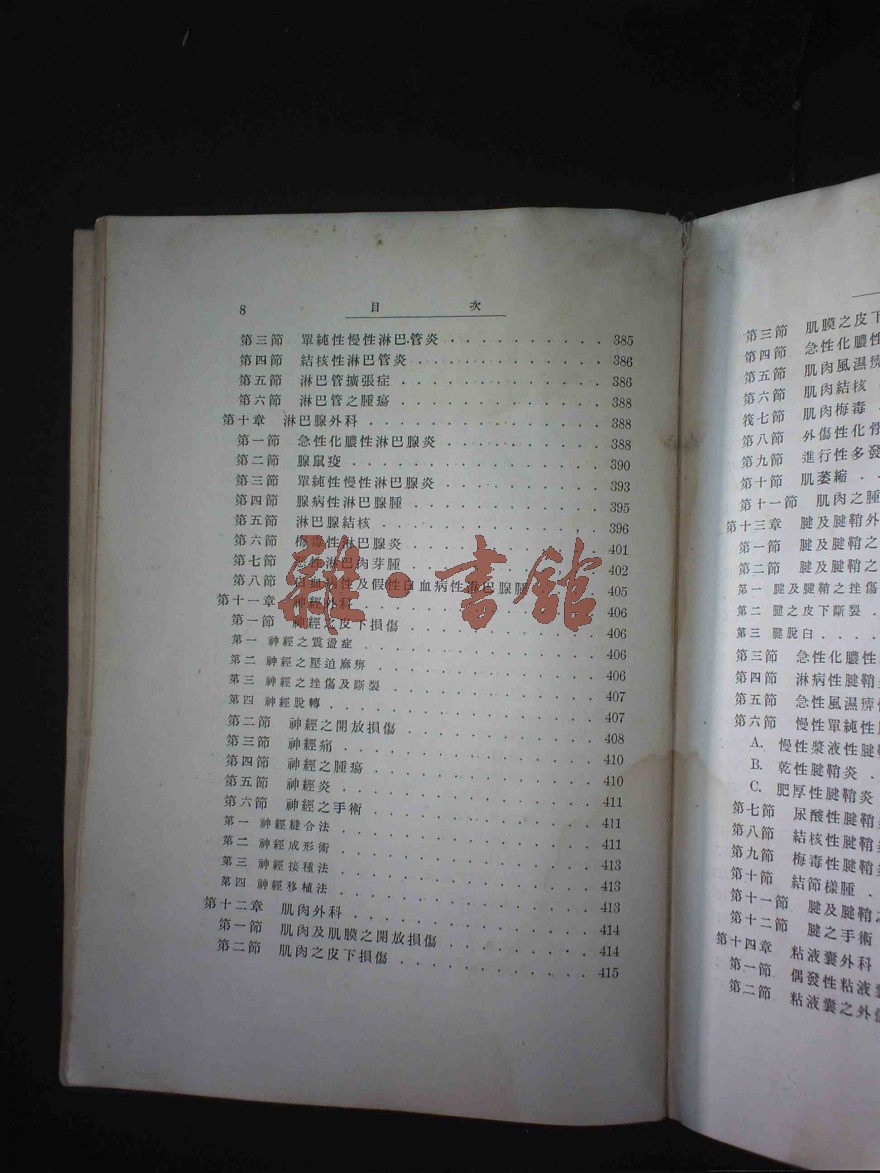 8 目 次
第三節 單純性慢性淋巴管炎 385
第四節 結核性淋巴管炎 386
第五節 淋巴管擴張症 386
第六節 淋巴管之腫瘍 388
第十章 淋巴腺外科 388
第一節 急性化膿性淋巴腺炎 388
第二節 腺鼠疫 390
第三節 單純性慢性淋巴腺炎 393
第四節 腺病性淋巴腺腫 395
第五節 淋巴腺結核 396
第六節 梅毒性淋巴腺炎 401
第七節 性淋巴肉芽腫 402
第八節 白血病性及假性白血病性淋巴腺腫 405
第十一章 神經外科 406
第一節 神經之皮下損傷 406
第一 神經之震盪症 406
第二 神經之壓迫麻痹 406
第三 神經之挫傷及斷裂 407
第四 神經脫轉 407
第二節 神經之開放損傷 408
第三節 神經痛 410
第四節 神經之腫瘍 410
第五節 神經炎 411
第六節 神經之手術 411
第一 神經縫合法 411
第二 神經成形術 413
第三 神經接種法 413
第四 神經移植法 413
第十二章 肌肉外科 414
第一節 肌肉及肌膜之開放損傷 414
第二節 肌肉之皮下損傷 415
雜·書館
第三節 肌膜之皮下
第四節 急性化膿性
第五節 肌肉風濕痹
第六節 肌肉結核
筏七節 肌肉梅毒
第八節 外傷性化骨
第九節 進行性多發
第十節 肌萎縮
第十一節 肌肉之腫
第十三章 腱及腱鞘外
第一節 腱及腱鞘之
第二節 腱及腱鞘之
第一 腱及腱鞘之挫傷
第二 腱之皮下斷裂
第三 腱脫臼
第三節 急性化膿性
第四節 淋病性腱鞘
第五節 急性風濕痹性
第六節 慢性單純性
A. 慢性漿液性腱
B. 乾性腱鞘炎
C. 肥厚性腱鞘炎
第七節 尿酸性腱鞘
第八節 結核性腱鞘
第九節 梅毒性腱鞘
第十節 結節樣腫
第十一節 腱及腱鞘
第十二節 腱之手術
第十四章 粘液囊外科
第一節 偶發性粘液
第二節 粘液囊之外傷